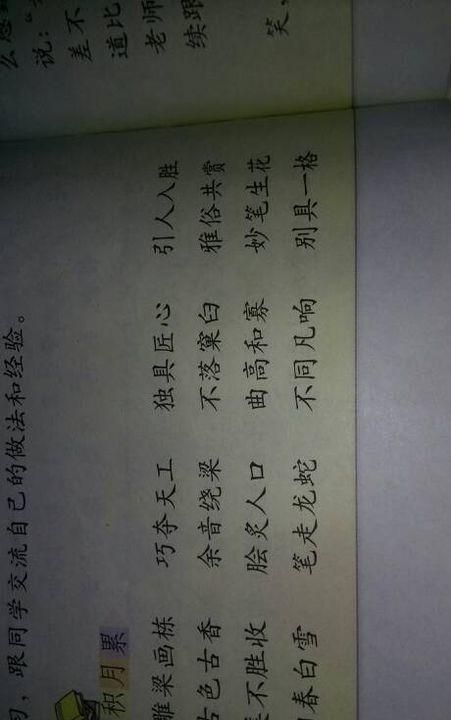 ，跟同学交流自己的做法和经验。
积月累
雕梁画栋 巧夺天工 独具匠心 引人入胜
古色古香 余音绕梁 不落窠臼 雅俗共赏
不胜收 脍炙人口 曲高和寡 妙笔生花
春白雪 笔走龙蛇 不同凡响 别具一格
么
说：“
差不
道比
老师
续跟
笑，